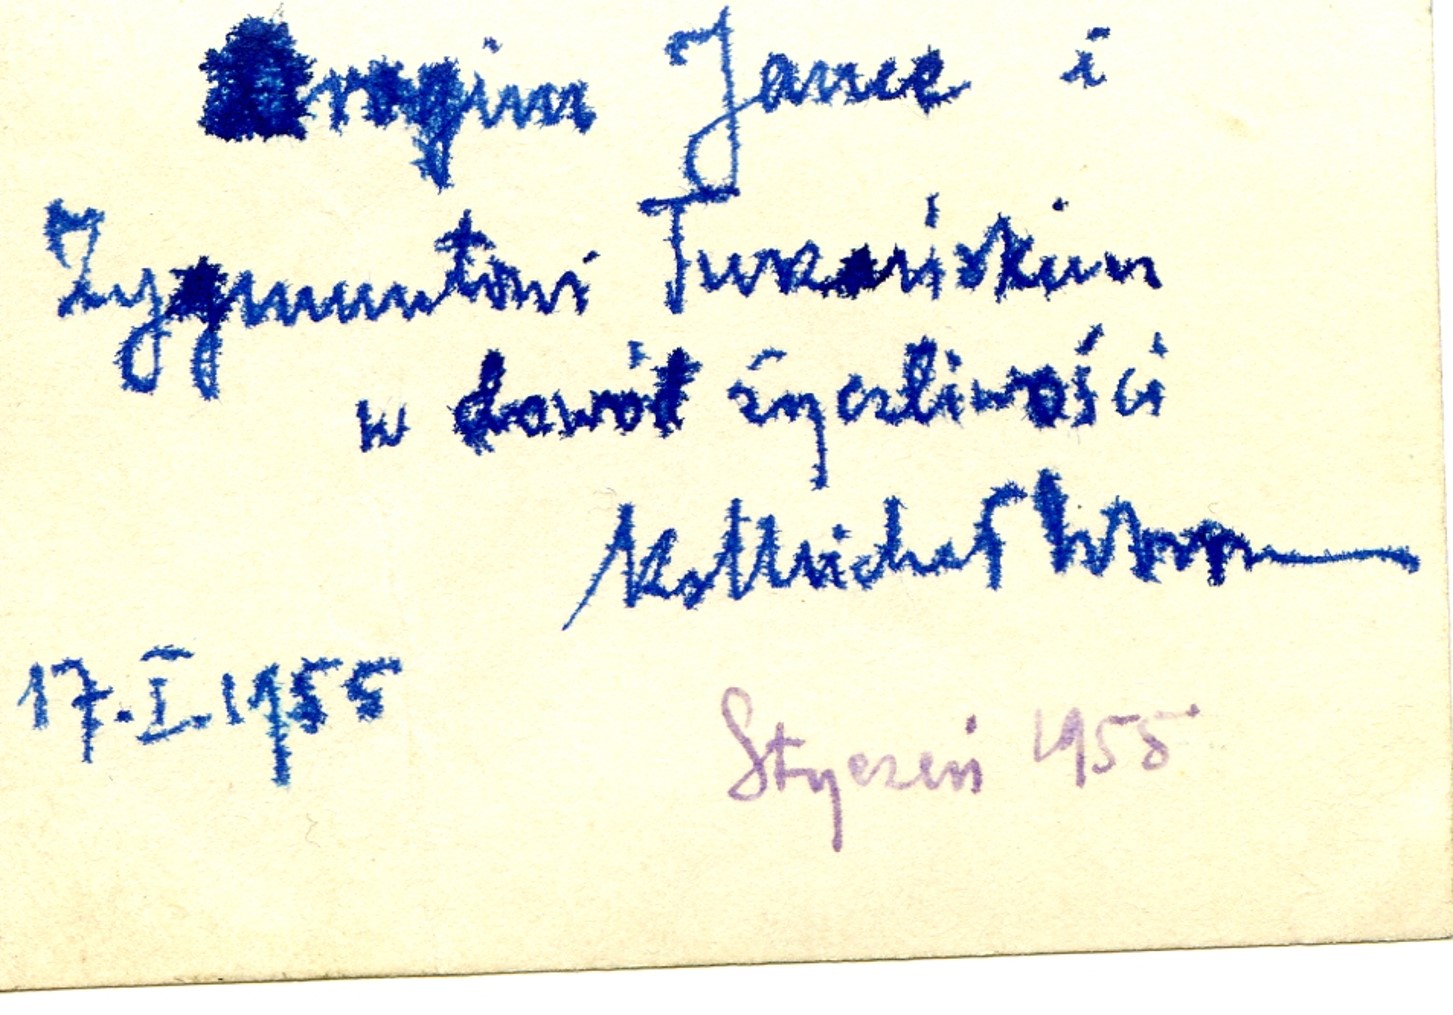 Drogim Jance i
Zygmuntowi Turzańskim
w dowód życzliwości
Ks Michał
17.I.1955
Styczeń 1955